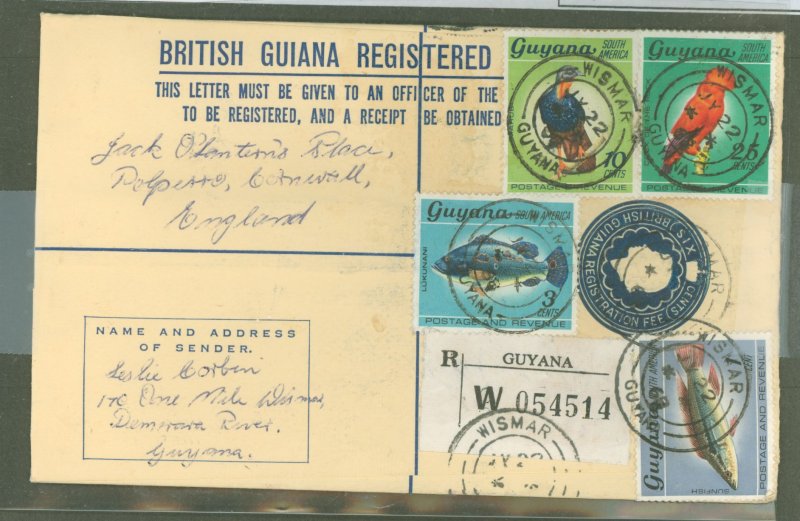 BRITISH GUIANA REGISTERED
THIS LETTER MUST BE GIVEN TO AN OFFICER OF THE
TO BE REGISTERED, AND A RECEIPT BE OBTAINED
Jack O'Lantern's Place,
Polperro, Cornwall,
England
Guyana SOUTH AMERICA
10 CENTS
POSTAGE AND REVENUE
WISMAR
JY 22
GUYANA
Guyana SOUTH AMERICA
25 CENTS
POSTAGE AND REVENUE
WISMAR
JY 22
GUYANA
Guyana SOUTH AMERICA
LUKUNANI
3 CENTS
POSTAGE AND REVENUE
GUYANA
BRITISH GUIANA
REGISTRATION FEE
SIX (CENTS)
NAME AND ADDRESS
OF SENDER.
Leslie Corbin
One Mile Wismar,
Demerara River.
Guyana.
R GUYANA
W 054514
WISMAR
JY 22
Guyana SOUTH AMERICA
SUNFISH
POSTAGE AND REVENUE
WISMAR
JY 22
GUYANA